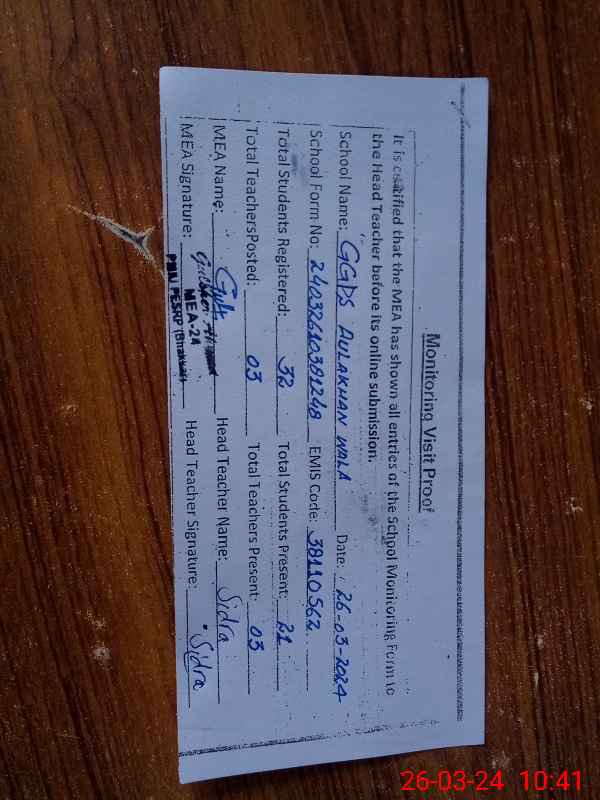 Monitoring Visit Proof
It is certified that the MEA has shown all entries of the School Monitoring Form to
the Head Teacher before its online submission.
School Name: GGPS AULAKHAN WALA Date: 26-03-2024
School Form No: 24032610381248 EMIS Code: 38110562
Total Students Registered: 32 Total Students Present: 21
Total TeachersPosted: 03 Total Teachers Present: 03
MEA Name: Head Teacher Name: Sidra
MEA Signature: Head Teacher Signature: Sidra
MEA-24
PMU PESRP (Bhakkar)
26-03-24 10:41